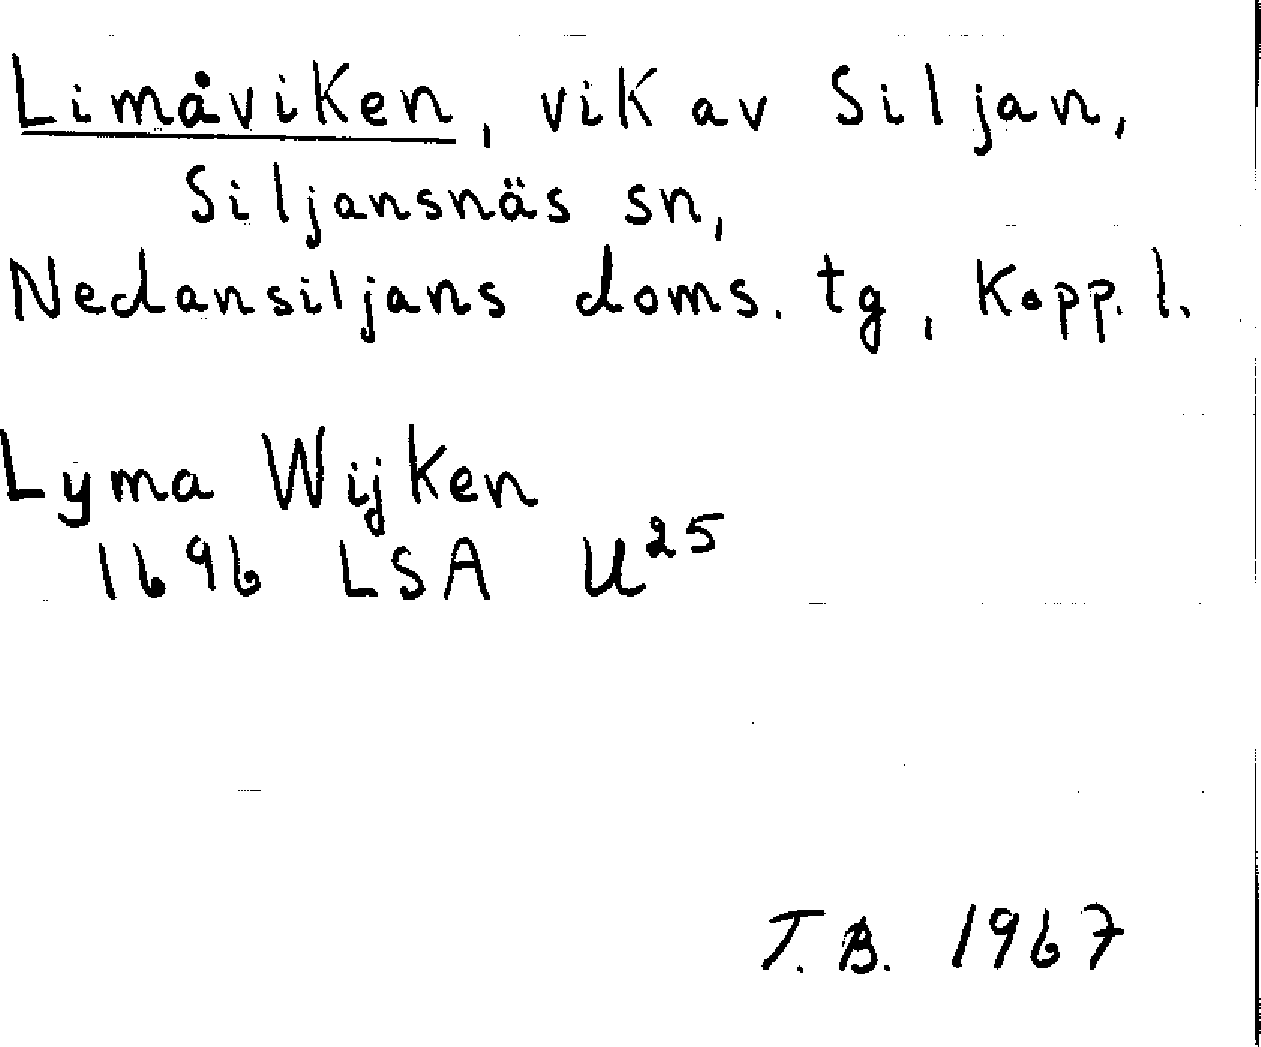 Limåviken, vik av Siljan,
Siljansnäs sn,
Nedansiljans doms. tg, Kopp. l.
Lyma Wijken
1696 LSA U25
T. B. 1967